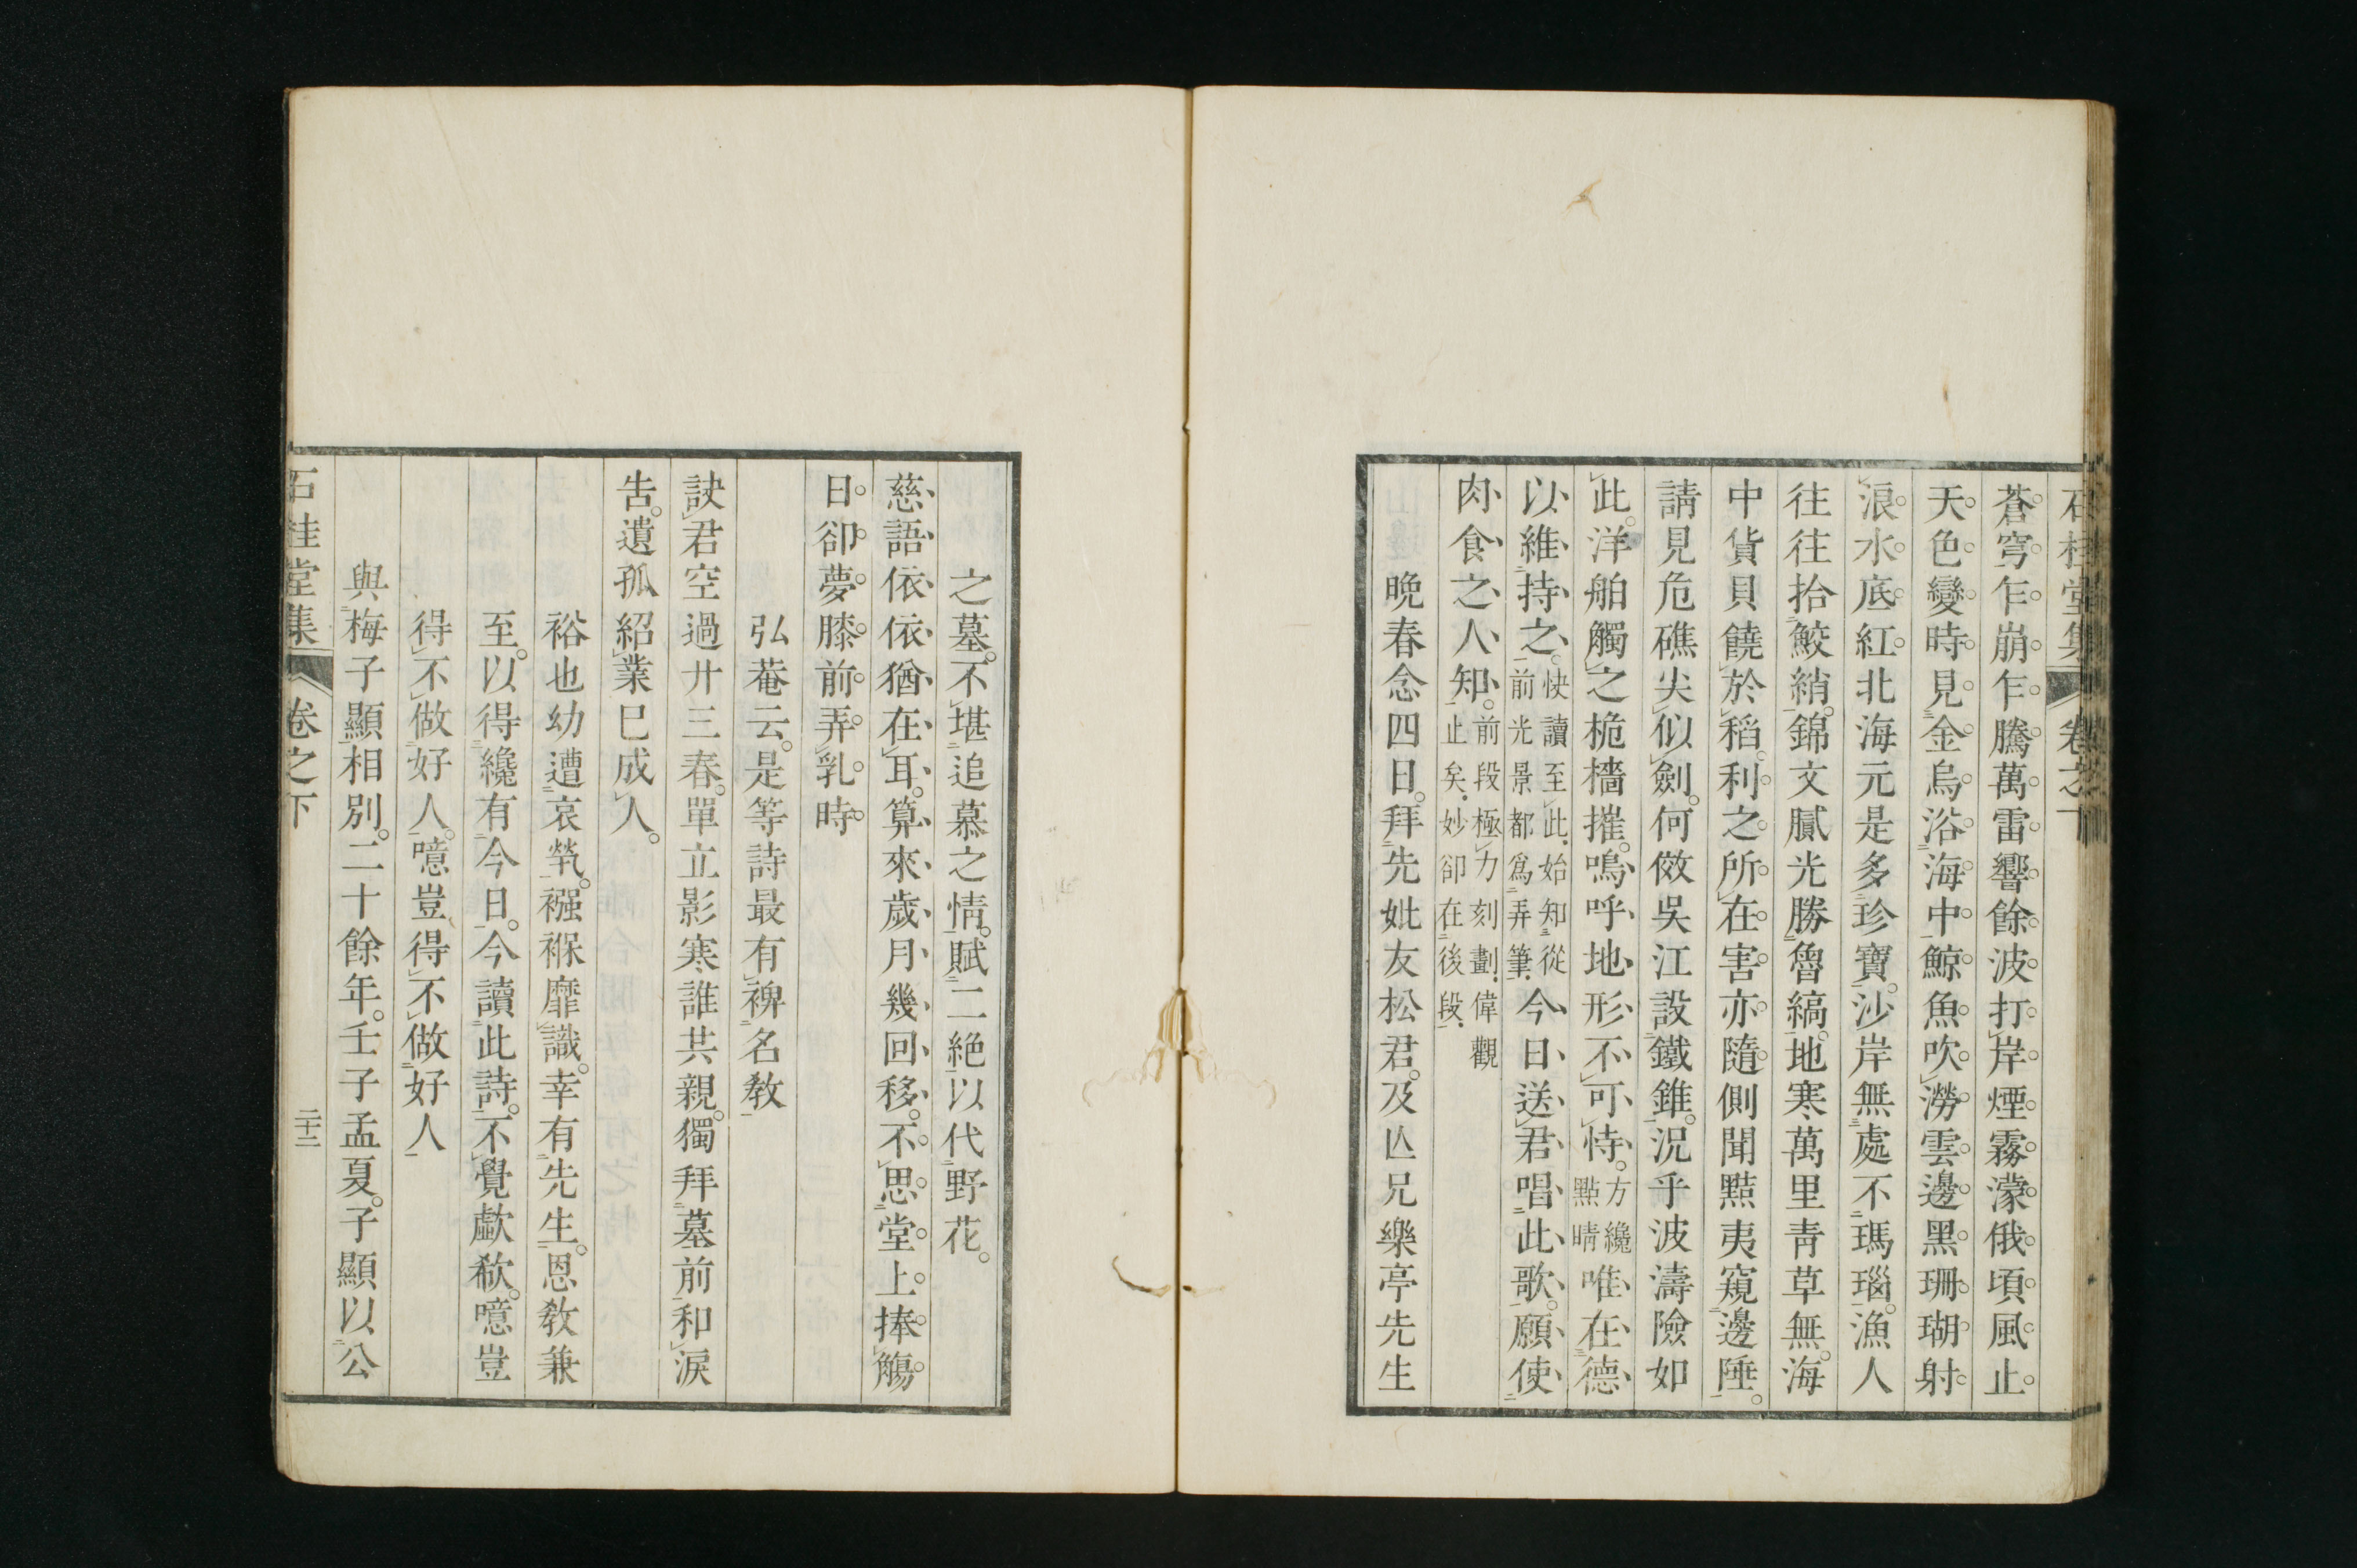 石桂堂集 卷之下
蒼穹乍崩乍騰萬雷響餘波打岸煙霧濛俄頃風止
天色變時見金烏浴海中鯨魚吹澇雲邊黑珊瑚射
浪水底紅北海元是多珍寶沙岸無處不瑪瑙漁人
往往拾鮫綃錦文膩光勝魯縞地寒萬里靑草無海
中貨貝饒於稻利之所在害亦隨側聞黠夷窺邊陲
請見危礁尖似劍何傚吳江設鐵錐況乎波濤險如
此洋舶觸之桅檣摧嗚呼地形不可恃方纔點睛唯在德
以維持之快讀至此始知從前光景都爲弄筆今日送君唱此歌願使
肉食之人知前段極力刻劃偉觀止矣妙卻在後段
晚春念四日拜先妣友松君及亾兄樂亭先生
之墓不堪追慕之情賦二絕以代野花
慈語依依猶在耳算來歲月幾回移不思堂上捧觴
日卻夢膝前弄乳時
弘菴云是等詩最有裨名敎
訣君空過廿三春單立影寒誰共親獨拜墓前和淚
告遺孤紹業巳成人
裕也幼遭哀煢襁褓靡識幸有先生恩敎兼
至以得纔有今日今讀此詩不覺歔欷噫豈
得不做好人噫豈得不做好人
與梅子顯相別二十餘年壬子孟夏子顯以公
石桂堂集 卷之下 二十二